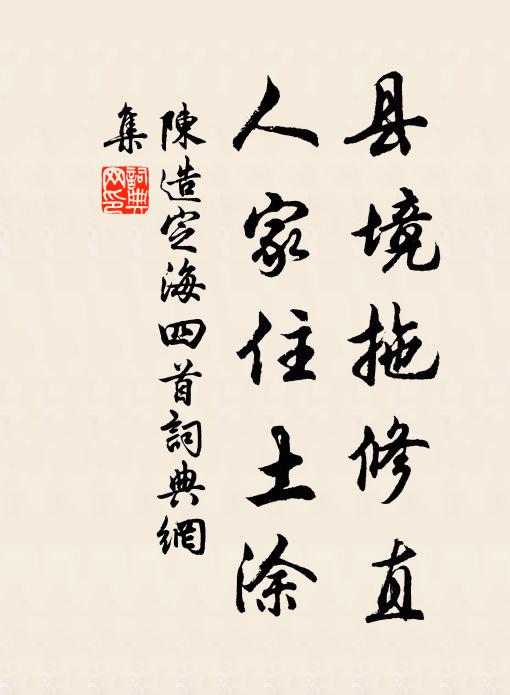 县境拖修直
人家住土涂
陳造定海四首詞典網
集
詞典网印